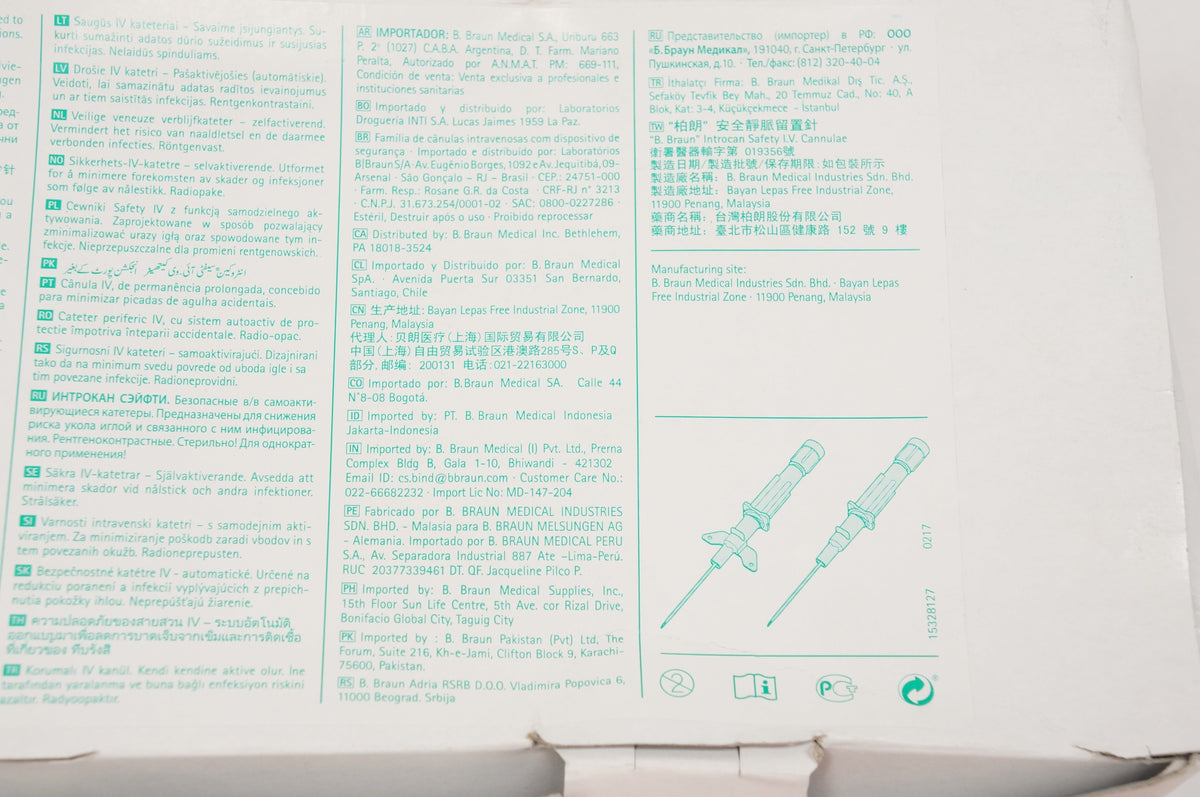 ed to
ions.
LT Saugūs IV kateteriai – Savaime įsijungiantys. Su-
kurti sumažinti adatos dūrio sužeidimus ir susijusias
infekcijas. Nelaidūs spinduliams.
LV Drošie IV katetri – Pašaktivējošies (automātiskie).
Veidoti, lai samazinātu adatas radītos ievainojumus
un ar tiem saistītās infekcijas. Rentgenkontrastaini.
NL Veilige veneuze verblijfkatheter – zelfactiverend.
Vermindert het risico van naaldletsel en de daarmee
verbonden infecties. Röntgenvast.
NO Sikkerhets-IV-katetre – selvaktiverende. Utformet
for å minimere forekomsten av skader og infeksjoner
som følge av nålestikk. Radiopake.
PL Cewniki Safety IV z funkcją samodzielnego ak-
tywowania. Zaprojektowane w sposób pozwalający
zminimalizować urazy igłą oraz spowodowane tym in-
fekcje. Nieprzepuszczalne dla promieni rentgenowskich.
PK
PT Cânula IV, de permanência prolongada, concebido
para minimizar picadas de agulha acidentais.
RO Cateter periferic IV, cu sistem autoactiv de pro-
tectie împotriva înteparii accidentale. Radio-opac.
RS Sigurnosni IV kateteri – samoaktivirajući. Dizajnirani
tako da na minimum svedu povrede od uboda igle i sa
tim povezane infekcije. Radioneprovidni.
RU ИНТРОКАН СЭЙФТИ. Безопасные в/в самоакти-
вирующиеся катетеры. Предназначены для снижения
риска укола иглой и связанного с ним инфицирова-
ния. Рентгеноконтрастные. Стерильно! Для однократ-
ного применения!
SE Säkra IV-katetrar – Självaktiverande. Avsedda att
minimera skador vid nålstick och andra infektioner.
Strålsäker.
SI Varnosti intravenski katetri – s samodejnim akti-
viranjem. Za minimiziranje poškodb zaradi vbodov in s
tem povezanih okužb. Radioneprepusten.
SK Bezpečnostné katétre IV - automatické. Určené na
redukciu poranení a infekcií vyplývajúcich z prepich-
nutia pokožky ihlou. Neprepúšťajú žiarenie.
TH ความปลอดภัยของสายสวน IV – ระบบอัตโนมัติ
ออกแบบมาเพื่อลดการบาดเจ็บจากเข็มและการติดเชื้อ
ที่เกี่ยวของ ทึบรังสี
TR Korumalı IV kanül. Kendi kendine aktive olur. İne
tarafından yaralanma ve buna bağlı enfeksiyon riskini
azaltır. Radyoopaktır.
AR IMPORTADOR: B. Braun Medical S.A., Uriburu 663
P. 2° (1027) C.A.B.A. Argentina, D. T. Farm. Mariano
Peralta, Autorizado por A.N.M.A.T. PM: 669-111,
Condición de venta: Venta exclusiva a profesionales e
instituciones sanitarias
BO Importado y distribuido por: Laboratorios
Droguería INTI S.A. Lucas Jaimes 1959 La Paz.
BR Família de cânulas intravenosas com dispositivo de
segurança · Importado e distribuido por: Laboratórios
B|Braun S/A · Av. Eugênio Borges, 1092 e Av. Jequitibá, 09-
Arsenal · São Gonçalo – RJ – Brasil · CEP.: 24751-000
· Farm. Resp.: Rosane G.R. da Costa · CRF-RJ n° 3213
· C.N.P.J. 31.673.254/0001-02 · SAC: 0800-0227286 ·
Estéril, Destruir após o uso · Proibido reprocessar
CA Distributed by: B. Braun Medical Inc. Bethlehem,
PA 18018-3524
CL Importado y Distribuido por: B. Braun Medical
SpA. · Avenida Puerta Sur 03351 San Bernardo,
Santiago, Chile
CN 生产地址: Bayan Lepas Free Industrial Zone, 11900
Penang, Malaysia
代理人: 贝朗医疗(上海)国际贸易有限公司
中国(上海)自由贸易试验区港澳路285号S、P及Q
部分, 邮编: 200131 电话: 021-22163000
CO Importado por: B.Braun Medical SA. Calle 44
N°8-08 Bogotá.
ID Imported by: PT. B. Braun Medical Indonesia
Jakarta-Indonesia
IN Imported by: B. Braun Medical (I) Pvt. Ltd., Prerna
Complex Bldg B, Gala 1-10, Bhiwandi - 421302
Email ID: cs.bind@bbraun.com · Customer Care No.:
022-66682232 · Import Lic No: MD-147-204
PE Fabricado por B. BRAUN MEDICAL INDUSTRIES
SDN. BHD. - Malasia para B. BRAUN MELSUNGEN AG
- Alemania. Importado por B. BRAUN MEDICAL PERU
S.A., Av. Separadora Industrial 887 Ate –Lima-Perú.
RUC 20377339461 DT. QF. Jacqueline Pilco P.
PH Imported by: B. Braun Medical Supplies, Inc.,
15th Floor Sun Life Centre, 5th Ave. cor Rizal Drive,
Bonifacio Global City, Taguig City
PK Imported by : B. Braun Pakistan (Pvt) Ltd, The
Forum, Suite 216, Kh-e-Jami, Clifton Block 9, Karachi-
75600, Pakistan.
RS B. Braun Adria RSRB D.O.O. Vladimira Popovica 6,
11000 Beograd. Srbija
RU Представительство (импортер) в РФ: ООО
«Б.Браун Медикал», 191040, г. Санкт-Петербург · ул.
Пушкинская, д.10. · Тел./факс: (812) 320-40-04
TR İthalatçı Firma: B. Braun Medikal Dış Tic. A.Ş.,
Sefaköy Tevfik Bey Mah., 20 Temmuz Cad., No: 40, A
Blok, Kat: 3-4, Küçükçekmece - İstanbul
TW “柏朗” 安全靜脈留置針
“B. Braun” Introcan Safety I.V. Cannulae
衛署醫器輸字第 019356號
製造日期/製造批號/保存期限: 如包裝所示
製造廠名稱: B. Braun Medical Industries Sdn. Bhd.
製造廠地址: Bayan Lepas Free Industrial Zone,
11900 Penang, Malaysia
藥商名稱: 台灣柏朗股份有限公司
藥商地址: 臺北市松山區健康路 152 號 9 樓
Manufacturing site:
B. Braun Medical Industries Sdn. Bhd. · Bayan Lepas
Free Industrial Zone · 11900 Penang, Malaysia
15328127 0217
2
i